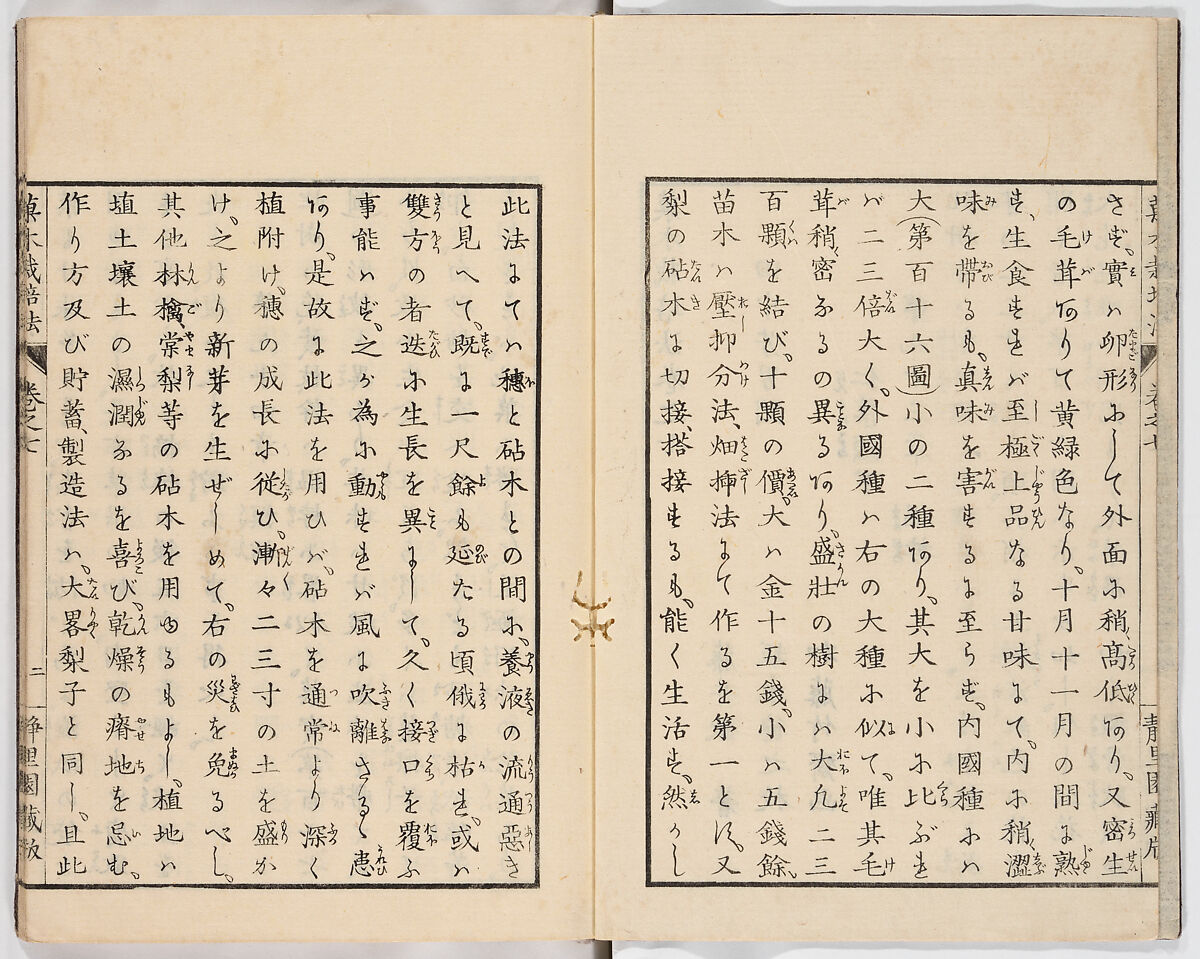 さず、實ハ卵形ふして外面ふ稍、高低あり、又密生
の毛茸ありて黄緑色なり、十月十一月の間に熟
す、生食すれバ至極上品なる甘味にて、内ふ稍澀
味を帯るも、真味を害するに至らず、内國種ふハ
大(第百十六圖)小の二種あり、其大を小ふ比ぶれ
バ二三倍大く、外國種ハ右の大種ふ似て、唯其毛
茸稍、密なるの異るあり、盛壯の樹にハ大凢二三
百顆を結び、十顆の價、大ハ金十五錢、小ハ五錢餘、
苗木ハ壓抑分法、畑挿法にて作るを第一とす、又
梨の砧木に切接、搭接するも、能く生活す、然かし
此法にてハ穗と砧木との間ふ、養液の流通惡き
と見へて、既に一尺餘も延たる頃俄に枯れ、或ハ
雙方の者迭ふ生長を異にして、久く接口を覆ふ
事能ハず、之が為ふ動すれバ風に吹離さるゝ患
あり、是故に此法を用ひバ、砧木を通常より深く
植附け、穗の成長ふ従ひ、漸々二三寸の土を盛か
け、之より新芽を生ぜしめて、右の災を免るべし、
其他林檎、棠梨等の砧木を用ゆるもよし、植地ハ
埴土壤土の濕潤なるを喜び、乾燥の瘠地を忌む、
作り方及び貯蓄、製造法ハ、大畧梨子と同し、且此
菓木栽培法 卷之七 二 靜里園藏版